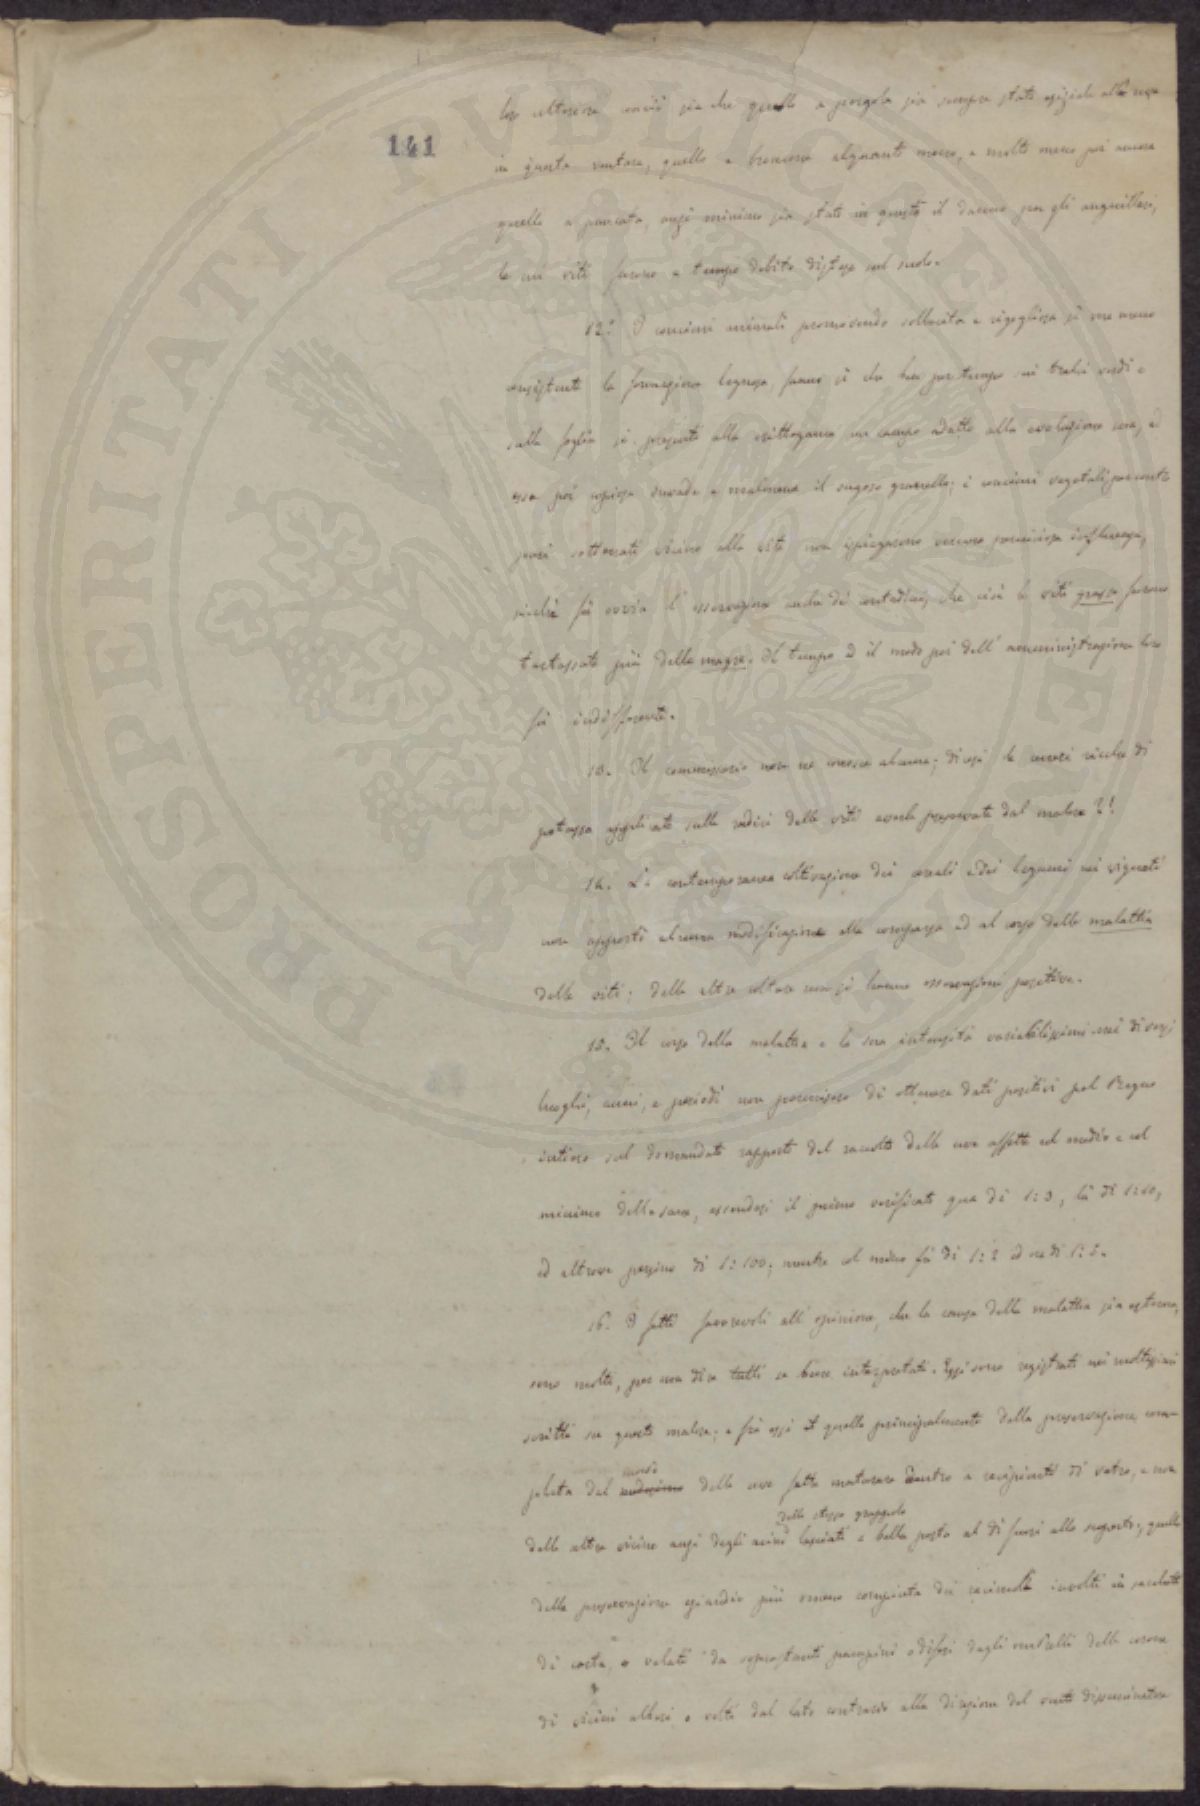 141
loro ulteriore conciò sia che quello a pergola sia sempre stato esiziale alle uve
in questa ventura, quello a broncone alquanto meno, e molto meno poi ancora
quello a puncata, anzi minimo sia stato in questo il danno per gli anguillari,
le cui viti furono a tempo debito distese sul suolo.
12.° I concimi animali promovendo sollecita e rigogliosa sì ma meno
consistente la formazione legnosa, fanno sì che ben per tempo sui tralci verdi e
sulla foglia si presenti alla crittogama un campo adatto alla evoluzione sua, ed
essa poi copiosa invade e malmena il sugoso granello; i concimi vegetali per contro
posti sotterrati vicino alla vite non ispiegarono veruna perniciosa influenza,
sicchè fù ovvia l'osservazione anche dei contadini, che cioè le viti grasse furono
tartassate più delle magre. Il tempo ed il modo poi dell'amministrazione loro
fù indifferente.
13. Il commissario non ne conosce alcuna; dicesi le ceneri ricche di
potassa applicate sulle radici delle viti averle preservate dal malore?!
14. La contemporanea coltivazione dei cereali e dei legumi nei vigneti
non apportò alcuna modificazione alla comparsa ed al corso della malattia
delle viti; delle altre colture non si hanno osservazioni positive.
15. Il corso della malattia e la sua intensità variabilissimi nei diversi
luoghi, anni, e periodi non permisero di ottenere dati positivi pel Regno
intiero sul domandato rapporto del raccolto delle uve affette col medio e col
minimo delle sane, essendosi il primo verificato qua di 1:3, là di 1:10,
ed altrove persino di 1:100; mentre col minimo fù di 1:2 ed ora di 1:5.
16. I fatti favorevoli all'opinione, che la causa della malattia sia esterna,
sono molti, per non dire tutti se bene interpretati. Essi sono registrati nei moltissimi
scritti su questo malore; e frà essi è quello principalmente della preservazione com-
pleta del morbo delle uve fatte maturare dentro a recipienti di vetro, e non
dello stesso grappolo
delle altre vicine anzi degli acini lasciati a bella posta al di fuori allo scoperto; quello
della preservazione eziandio più o meno compiuta dei racimoli involti in sacchetti
di carta, o velati da soprastanti pampini o difesi dagli ombrelli delle corone
di vicini alberi o volti dal lato contrario alla direzione del vento disseminatore